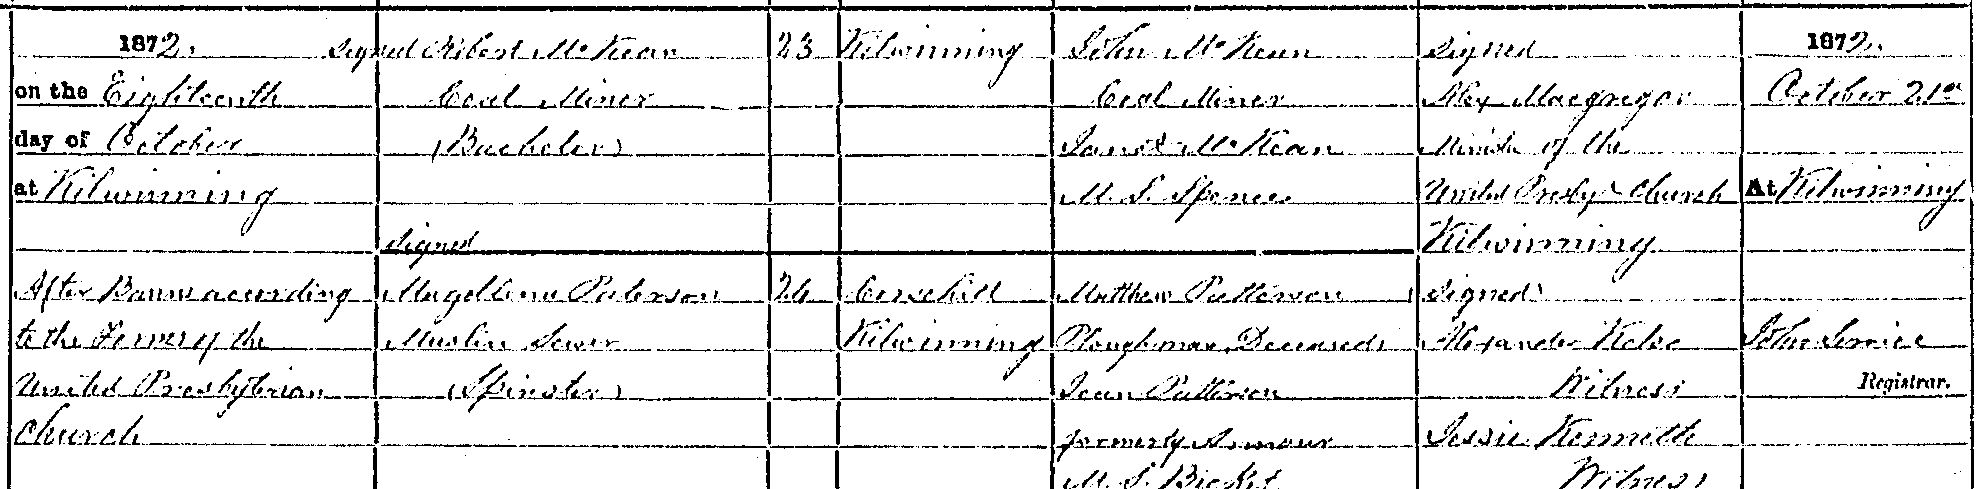 1872.
on the Eighteenth
day of October
at Kilwinning
After Banns according
to the Forms of the
United Presbyterian
Church
signed Robert McKean
Coal Miner
(Bachelor)
signed
Magdlene Paterson
Muslin Sewer
(Spinster)
23
26
Kilwinning
Kilwinning
John McKean
Coal Miner
Janet McKean
M. S. Spence
Matthew Patterson
Ploughman, Deceased
Jean Patterson
formerly Armour
M. S. Bicket
Signed
Alex Macgregor
Minister of the
United Presbyn Church
Kilwinning
(Signed)
Alexander Kelso
Witness
Jessie Kenneth
Witness
1872.
October 21st
At Kilwinning
John Service
Registrar.